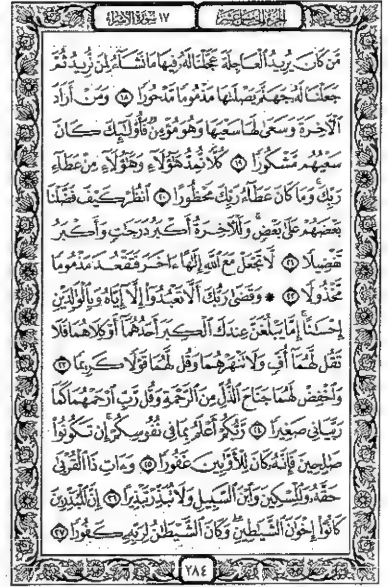 الجزء الخامس عشر
١٧ سورة الإسراء
مَّن كَانَ يُرِيدُ ٱلْعَاجِلَةَ عَجَّلْنَا لَهُۥ فِيهَا مَا نَشَآءُ لِمَن نُّرِيدُ ثُمَّ
جَعَلْنَا لَهُۥ جَهَنَّمَ يَصْلَىٰهَا مَذْمُومًا مَّدْحُورًا ١٨ وَمَنْ أَرَادَ
ٱلْـَٔاخِرَةَ وَسَعَىٰ لَهَا سَعْيَهَا وَهُوَ مُؤْمِنٌ فَأُو۟لَـٰٓئِكَ كَانَ
سَعْيُهُم مَّشْكُورًا ١٩ كُلًّا نُّمِدُّ هَـٰٓؤُلَآءِ وَهَـٰٓؤُلَآءِ مِنْ عَطَآءِ
رَبِّكَ ۚ وَمَا كَانَ عَطَآءُ رَبِّكَ مَحْظُورًا ٢٠ ٱنظُرْ كَيْفَ فَضَّلْنَا
بَعْضَهُمْ عَلَىٰ بَعْضٍ ۚ وَلَلْـَٔاخِرَةُ أَكْبَرُ دَرَجَـٰتٍ وَأَكْبَرُ
تَفْضِيلًا ٢١ لَّا تَجْعَلْ مَعَ ٱللَّهِ إِلَـٰهًا ءَاخَرَ فَتَقْعُدَ مَذْمُومًا
مَّخْذُولًا ٢٢ ۞ وَقَضَىٰ رَبُّكَ أَلَّا تَعْبُدُوٓا۟ إِلَّآ إِيَّاهُ وَبِٱلْوَٰلِدَيْنِ
إِحْسَـٰنًا ۚ إِمَّا يَبْلُغَنَّ عِندَكَ ٱلْكِبَرَ أَحَدُهُمَآ أَوْ كِلَاهُمَا فَلَا
تَقُل لَّهُمَآ أُفٍّ وَلَا تَنْهَرْهُمَا وَقُل لَّهُمَا قَوْلًا كَرِيمًا ٢٣
وَٱخْفِضْ لَهُمَا جَنَاحَ ٱلذُّلِّ مِنَ ٱلرَّحْمَةِ وَقُل رَّبِّ ٱرْحَمْهُمَا كَمَا
رَبَّيَانِى صَغِيرًا ٢٤ رَّبُّكُمْ أَعْلَمُ بِمَا فِى نُفُوسِكُمْ ۚ إِن تَكُونُوا۟
صَـٰلِحِينَ فَإِنَّهُۥ كَانَ لِلْأَوَّٰبِينَ غَفُورًا ٢٥ وَءَاتِ ذَا ٱلْقُرْبَىٰ
حَقَّهُۥ وَٱلْمِسْكِينَ وَٱبْنَ ٱلسَّبِيلِ وَلَا تُبَذِّرْ تَبْذِيرًا ٢٦ إِنَّ ٱلْمُبَذِّرِينَ
كَانُوٓا۟ إِخْوَٰنَ ٱلشَّيَـٰطِينِ ۖ وَكَانَ ٱلشَّيْطَـٰنُ لِرَبِّهِۦ كَفُورًا ٢٧
٢٨٤